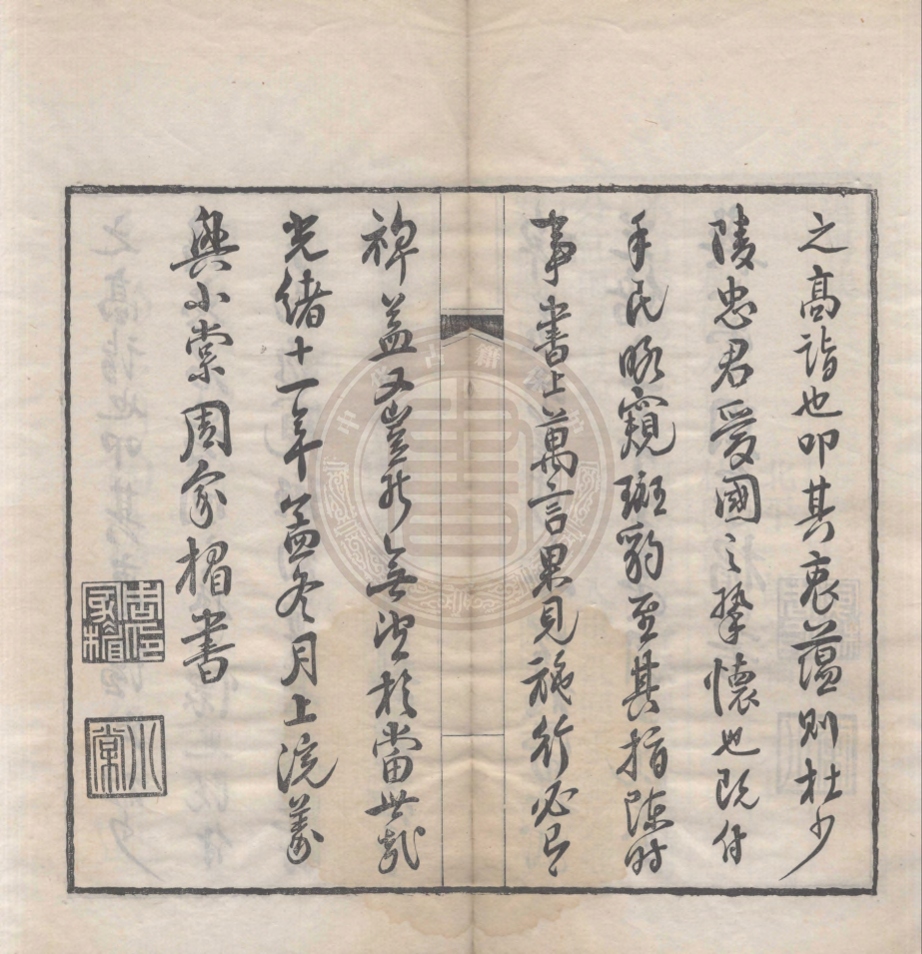 之高詣也叩其衷蘊則杜少
陵忠君愛國之摯懷也既付
手民略窺斑豹至其指陳時
事書上萬言果見施行必有
裨益又豈能無望於當世哉
光緒十一年孟冬月上浣義
興小棠周家楣書
周家楣印
小棠